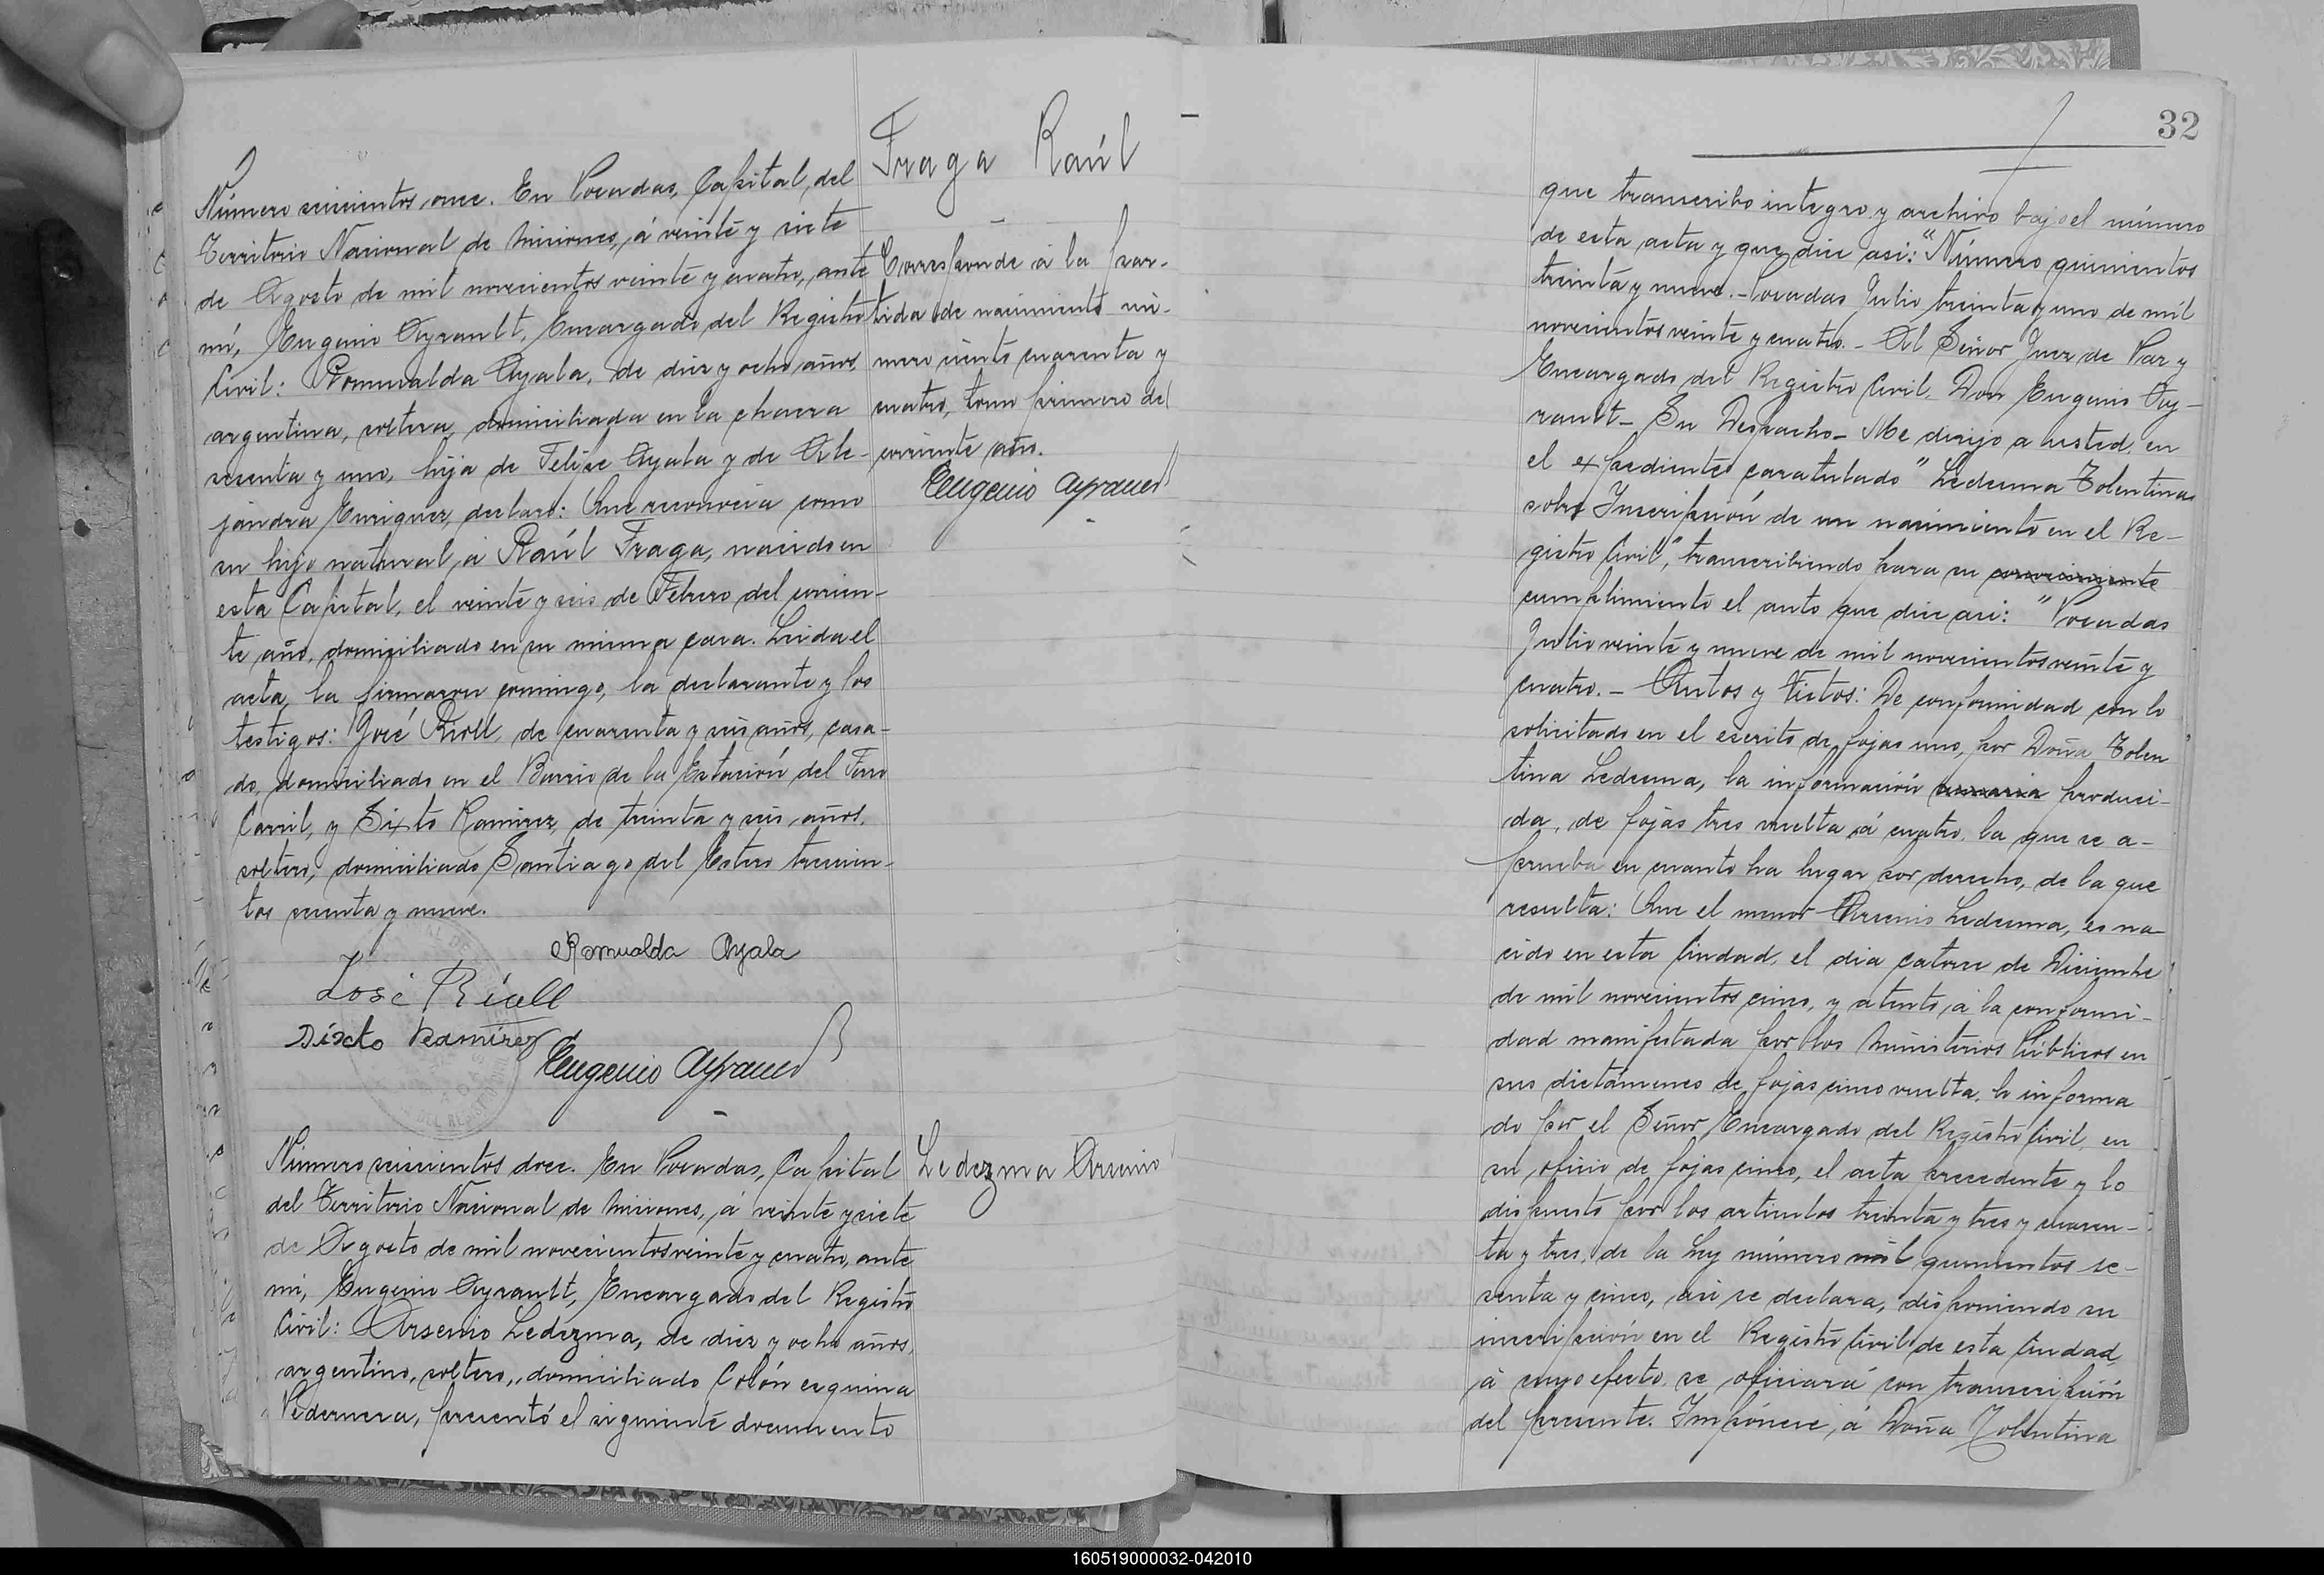 Fraga Raúl
Número seiscientos once. En Posadas, Capital del
Territorio Nacional de Misiones, á veinte y siete
de Agosto de mil novecientos veinte y cuatro, ante
mí, Eugenio Ayrault, Encargado del Registro
Civil: Romualda Ayala, de diez y ocho años,
argentina, soltera, domiciliada en la chacra
sesenta y uno, hija de Felipe Ayala y de Ale-
jandra Enriquez, declaró: Que reconocia como
su hijo natural, á Raúl Fraga, nacido en
esta Capital, el veinte y seis de Febrero del corrien-
te año, domiciliado en su misma casa. Leida el
acta, la firmaron conmigo, la declarante y los
testigos: José Rioll, de cuarenta y seis años, casa-
do, domiciliado en el Barrio de la Estación del Ferro
Carril, y Sixto Ramirez, de treinta y seis años,
soltero, domiciliado Santiago del Estero trescien-
tos sesenta y nueve.
Romualda Ayala
José Rioll
Sixto Ramírez
Eugenio Ayrault
Corresponde á la par-
tida de nacimiento nú-
mero ciento cuarenta y
cuatro, tomo primero del
corriente año.
Eugenio Ayrault
Ledezma Arsenio
Número seiscientos doce. En Posadas, Capital
del Territorio Nacional de Misiones, á veinte y siete
de Agosto de mil novecientos veinte y cuatro, ante
mí, Eugenio Ayrault, Encargado del Registro
Civil: Arsenio Ledezma, de diez y ocho años,
argentino, soltero, domiciliado Colón esquina
Pedernera, presentó el siguiente documento
32
que transcribo integro y archivo bajo el número
de esta acta y que dice asi: "Número quinientos
treinta y nueve.- Posadas Julio treinta y uno de mil
novecientos veinte y cuatro.- Al Señor Juez de Paz y
Encargado del Registro Civil Don Eugenio Ay-
rault- Su Despacho- Me dirijo a usted, en
el expediente caratulado "Ledesma Tolentina
sobre Inscripción de un nacimiento en el Re-
gistro Civil", transcribiendo para su conocimiento
cumplimiento el auto que dice asi: "Posadas
Julio veinte y nueve de mil novecientos veinte y
cuatro.- Autos y Vistos: De conformidad con lo
solicitado en el escrito de fojas uno, por Doña Tolen
tina Ledesma, la información sumaria produci-
da, de fojas tres vuelta á cuatro, la que se a-
prueba en cuanto ha lugar por derecho, de la que
resulta: Que el menor Arsenio Ledesma, es na-
cido en esta Ciudad, el dia catorce de Diciembre
de mil novecientos cinco, y atento, á la conformi-
dad manifestada por los Ministerios Públicos en
sus dictámenes de fojas cinco vuelta, lo informa
do por el Señor Encargado del Registro Civil, en
su oficio de fojas cinco, el acta precedente y lo
dispuesto por los articulos treinta y tres y cuaren-
ta y tres, de la Ley número mil quinientos se-
senta y cinco, asi se declara, disponiendo su
inscripción en el Registro Civil de esta Ciudad,
á cuyo efecto, se oficiará con transcripción
del presente. Impónese, á Doña Tolentina
160519000032-042010